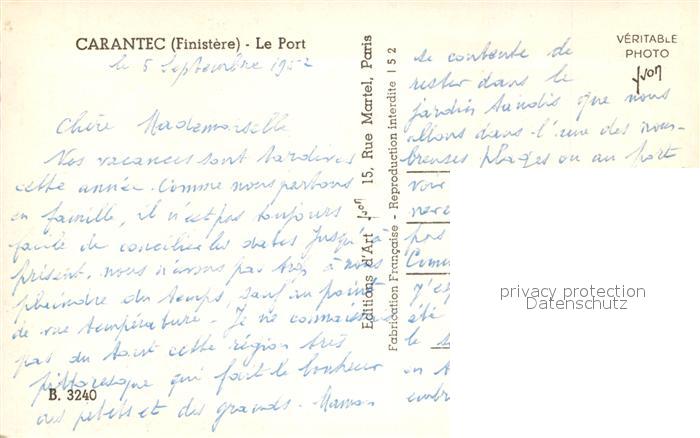 CARANTEC (Finistère) - Le Port
le 5 Septembre 1952
Chère Mademoiselle
Nos vacances sont tardives
cette année. Comme nous partons
en famille, il n'est pas toujours
facile de concilier les dates. Jusqu'à
présent, nous n'avons pas trop à nous
plaindre du temps, sauf au point
de vue température. Je ne connaissais
pas du tout cette région très
pittoresque qui fait le bonheur
des petits et des grands. Maman
B. 3240
Editions d'Art yvon 15, Rue Martel, Paris
Fabrication Française - Reproduction interdite 152
VÉRITABLE
PHOTO
yvon
se contente de
rester dans le
jardin tandis que nous
allons dans l'une des nom-
breuses plages ou au port
voir
pas
été
le
privacy protection
Datenschutz